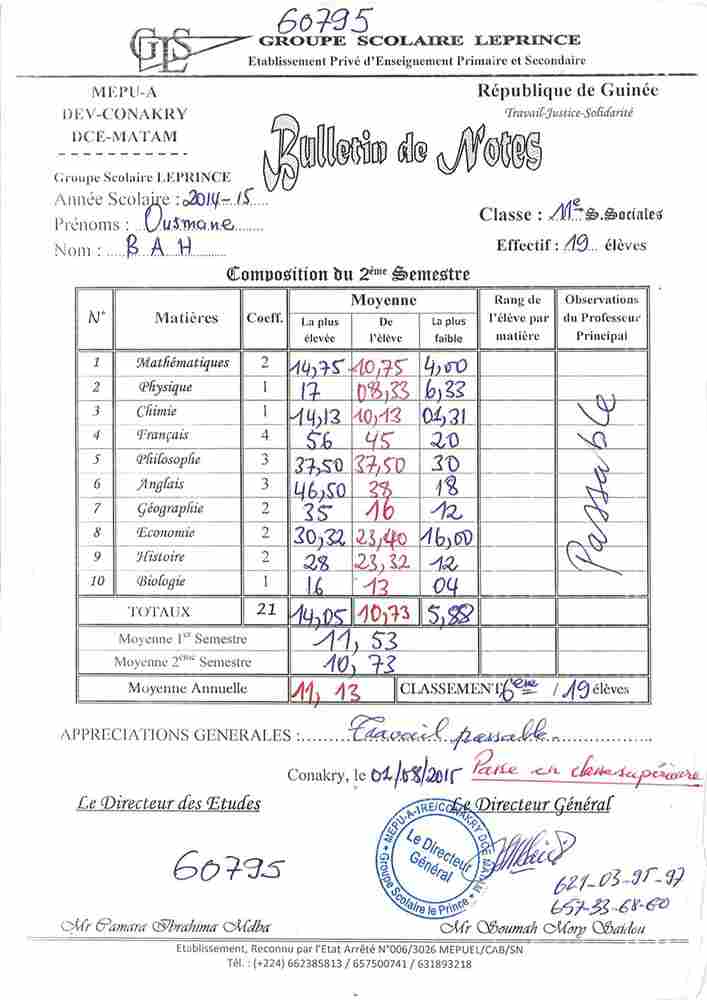 60795
GLS
GROUPE SCOLAIRE LEPRINCE
Etablissement Privé d'Enseignement Primaire et Secondaire
MEPU-A
DEV-CONAKRY
DCE-MATAM
République de Guinée
Travail-Justice-Solidarité
Bulletin de Notes
Groupe Scolaire LEPRINCE
Année Scolaire : 2014-15
Prénoms : Ousmane
Nom : BAH
Classe : 11e S.Sociales
Effectif : 19 élèves
Composition du 2ème Semestre
N° Matières Coeff. Moyenne Rang de l'élève par matière Observations du Professeur Principal
La plus élevée De l'élève La plus faible
1 Mathématiques 2 14,75 10,75 4,00
2 Physique 1 17 08,33 6,33
3 Chimie 1 14,13 10,13 01,31
4 Français 4 56 45 20
5 Philosophe 3 37,50 37,50 30
6 Anglais 3 46,50 38 18
7 Géographie 2 35 16 12
8 Economie 2 30,32 23,40 16,00
9 Histoire 2 28 23,32 12
10 Biologie 1 16 13 04
Passable
TOTAUX 21 14,05 10,73 5,88
Moyenne 1er Semestre 11,53
Moyenne 2ème Semestre 10,73
Moyenne Annuelle 11,13 CLASSEMENT 6ème / 19 élèves
APPRECIATIONS GENERALES : Travail passable
Conakry, le 01/08/2015 Passe en classe supérieure
Le Directeur des Etudes
Le Directeur Général
MEPU-A-IRE/CONAKRY DCE MATAM
Le Directeur Général
Groupe Scolaire le Prince
60795
621-03-95-97
657-33-68-60
Mr Camara Ibrahima Mdba
Mr Soumah Mory Saidou
Etablissement, Reconnu par l'Etat Arrêté N°006/3026 MEPUEL/CAB/SN
Tél. : (+224) 662385813 / 657500741 / 631893218